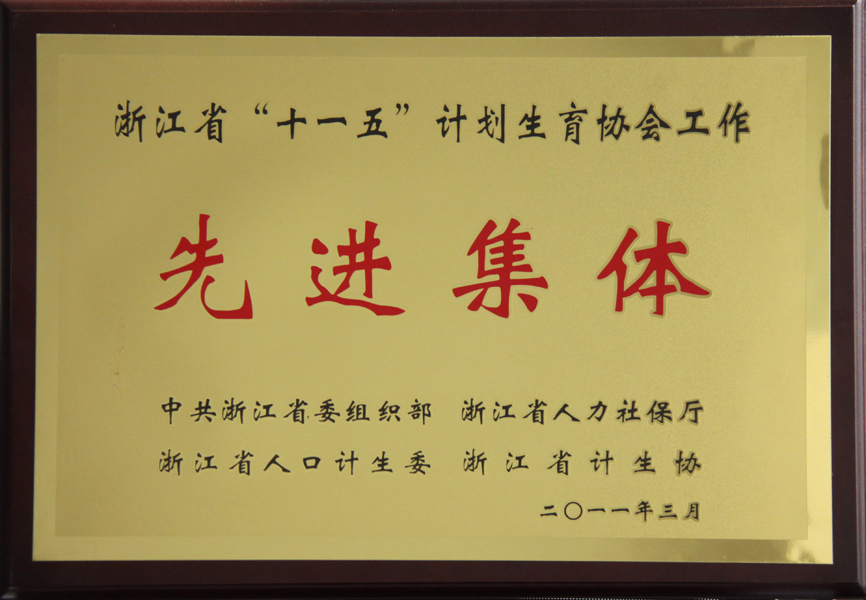 浙江省“十一五”计划生育协会工作
先进集体
中共浙江省委组织部 浙江省人力社保厅
浙江省人口计生委 浙江省计生协
二〇一一年三月